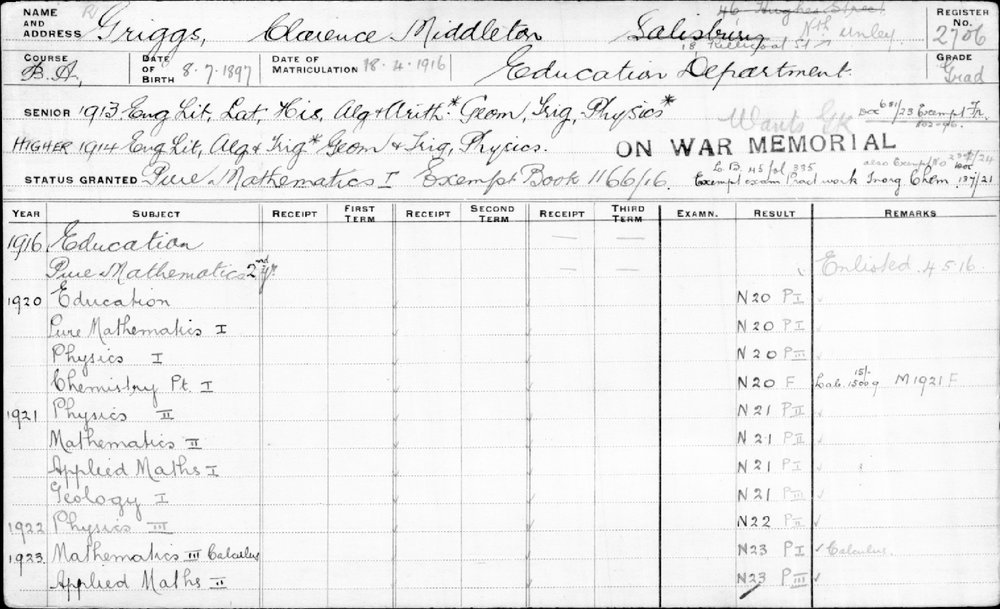 NAME AND ADDRESS R Griggs, Clarence Middleton Salisbury 46 Hughes Street Nth Unley. REGISTER No. 2706
COURSE B.A. DATE OF BIRTH 8.7.1897 DATE OF MATRICULATION 18.4.1916 Education Department. GRADE Grad
SENIOR 1913 Eng Lit, Lat, His, Alg & Arith* Geom, Trig, Physics* Wants GK Exempt Fr.
HIGHER 1914 Eng Lit, Alg & Trig* Geom & Trig, Physics. ON WAR MEMORIAL
STATUS GRANTED Pure Mathematics I Exempt Book 1166/16. Exempt exam Pract work Inorg Chem 187/21
YEAR SUBJECT RECEIPT FIRST TERM RECEIPT SECOND TERM RECEIPT THIRD TERM EXAMN. RESULT REMARKS
1916 Education — —
Pure Mathematics 2nd yr. — — Enlisted 4.5.16
1920 Education N20 PI
Pure Mathematics I N20 PI
Physics I N20 PIII
Chemistry Pt. I N20 F Lab. 1500g 15/- M1921 F
1921 Physics II N21 PII
Mathematics II N21 PII
Applied Maths I N21 PI
Geology I N21 PIII
1922 Physics III N22 PII
1923 Mathematics III Calculus N23 PI ✓ Calculus.
Applied Maths II N23 PIII ✓